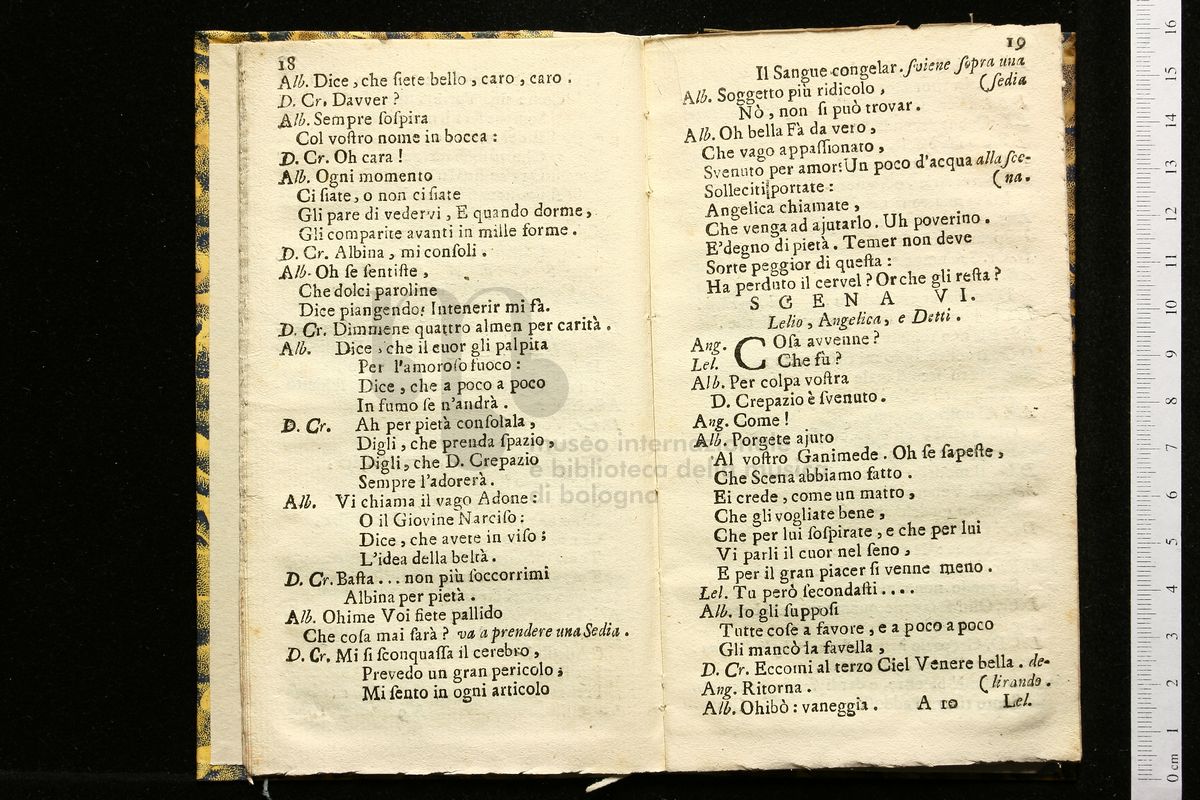 18
Alb. Dice, che ſiete bello, caro, caro.
D. Cr. Davver?
Alb. Sempre ſoſpira
Col voſtro nome in bocca:
D. Cr. Oh cara!
Alb. Ogni momento
Ci ſiate, o non ci ſiate
Gli pare di vedervi, E quando dorme,
Gli comparite avanti in mille forme.
D. Cr. Albina, mi conſoli.
Alb. Oh ſe ſentiſte,
Che dolci paroline
Dice piangendo! Intenerir mi fà.
D. Cr. Dimmene quattro almen per carità.
Alb. Dice, che il cuor gli palpita
Per l'amoroſo fuoco:
Dice, che a poco a poco
In fumo ſe n'andrà.
D. Cr. Ah per pietà conſolala,
Digli, che prenda ſpazio,
Digli, che D. Crepazio
Sempre l'adorerà.
Alb. Vi chiama il vago Adone:
O il Giovine Narciſo:
Dice, che avete in viſo;
L'idea della beltà.
D. Cr. Baſta... non più ſoccorrimi
Albina per pietà.
Alb. Ohime Voi ſiete pallido
Che coſa mai ſarà? va a prendere una Sedia.
D. Cr. Mi ſi ſconquaſſa il cerebro,
Prevedo un gran pericolo;
Mi ſento in ogni articolo
19
Il Sangue congelar. ſviene ſopra una
(ſedia
Alb. Soggetto più ridicolo,
Nò, non ſi può trovar.
Alb. Oh bella Fà da vero,
Che vago appaſſionato,
Svenuto per amor! Un poco d'acqua alla ſce-
(na.
Solleciti portate:
Angelica chiamate,
Che venga ad ajutarlo. Uh poverino.
E'degno di pietà. Temer non deve
Sorte peggior di queſta:
Ha perduto il cervel? Or che gli reſta?
SCENA VI.
Lelio, Angelica, e Detti.
Ang. COſa avvenne?
Lel. Che fù?
Alb. Per colpa voſtra
D. Crepazio è ſvenuto.
Ang. Come!
Alb. Porgete ajuto
Al voſtro Ganimede. Oh ſe ſapeſte,
Che Scena abbiamo fatto.
Ei crede, come un matto,
Che gli vogliate bene,
Che per lui ſoſpirate, e che per lui
Vi parli il cuor nel ſeno,
E per il gran piacer ſi venne meno.
Lel. Tu però ſecondaſti....
Alb. Io gli ſuppoſi
Tutte coſe a favore, e a poco a poco
Gli mancò la favella,
D. Cr. Eccomi al terzo Ciel Venere bella. de-
(lirando.
Ang. Ritorna.
Alb. Ohibò: vaneggia. A 10 Lel.
museo internazionale
e biblioteca della musica
di bologna
0 cm 1 2 3 4 5 6 7 8 9 10 11 12 13 14 15 16